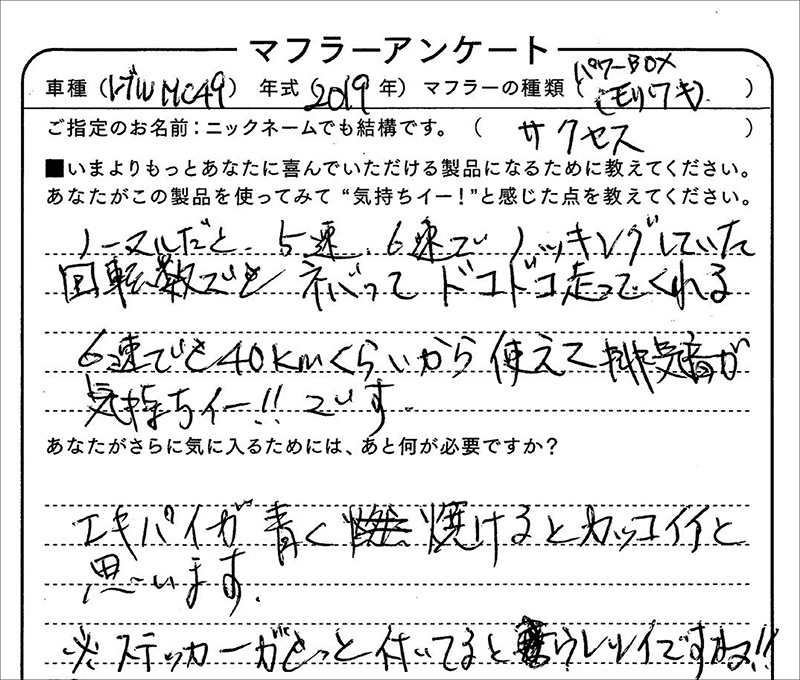 マフラーアンケート
車種（レブル MC49） 年式（2019年） マフラーの種類（パワーBOX（モリワキ））
ご指定のお名前：ニックネームでも結構です。（ サクセス ）
■いまよりもっとあなたに喜んでいただける製品になるために教えてください。
あなたがこの製品を使ってみて “気持ちイー！”と感じた点を教えてください。
ノーマルだと、5速、6速でノッキングしていた
回転数でも ネバって ドコドコ走ってくれる
6速でも40kmくらいから使えて排気音が
気持ちイー!!です。
あなたがさらに気に入るためには、あと何が必要ですか？
エキパイが青く焼けるとカッコイイと
思います。
※ステッカーがもっと付いてるとウレシイですかね!!